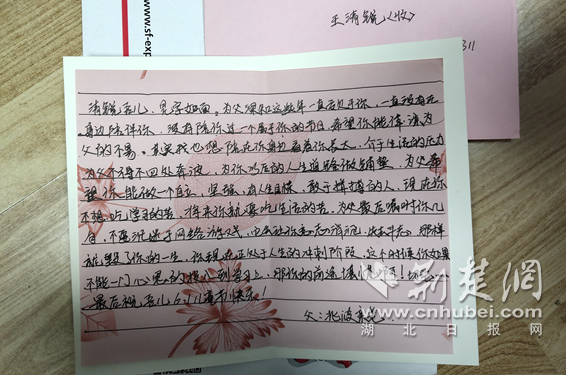 www.sf-exp
王清锐(收)
311
清锐吾儿,见字如面。为父深知这些年一直亏欠于你,一直没有在
身边陪伴你,没有陪你过一个属于你的节日希望你能体谅为
父的不易。其实我也想陪在你身边看着你长大,介于生活的压力
为父不得不四处奔波,为你以后的人生道路做铺垫,为父希
望你能做一个自立、坚强、有人生目标、敢于拼搏的人,现在你
不想吃学习的苦,将来你就要吃生活的苦。为父最后嘱咐你几
句,不要沉迷于网络游戏,
就毁了你的一生,你现在正处于人生的冲刺阶段,这个时候你如果
不能一门心思的投入到学习上,那你的前途
最后祝吾儿六一儿童节快乐!
父:
荆楚網
www.cnhubei.com
湖北日报网